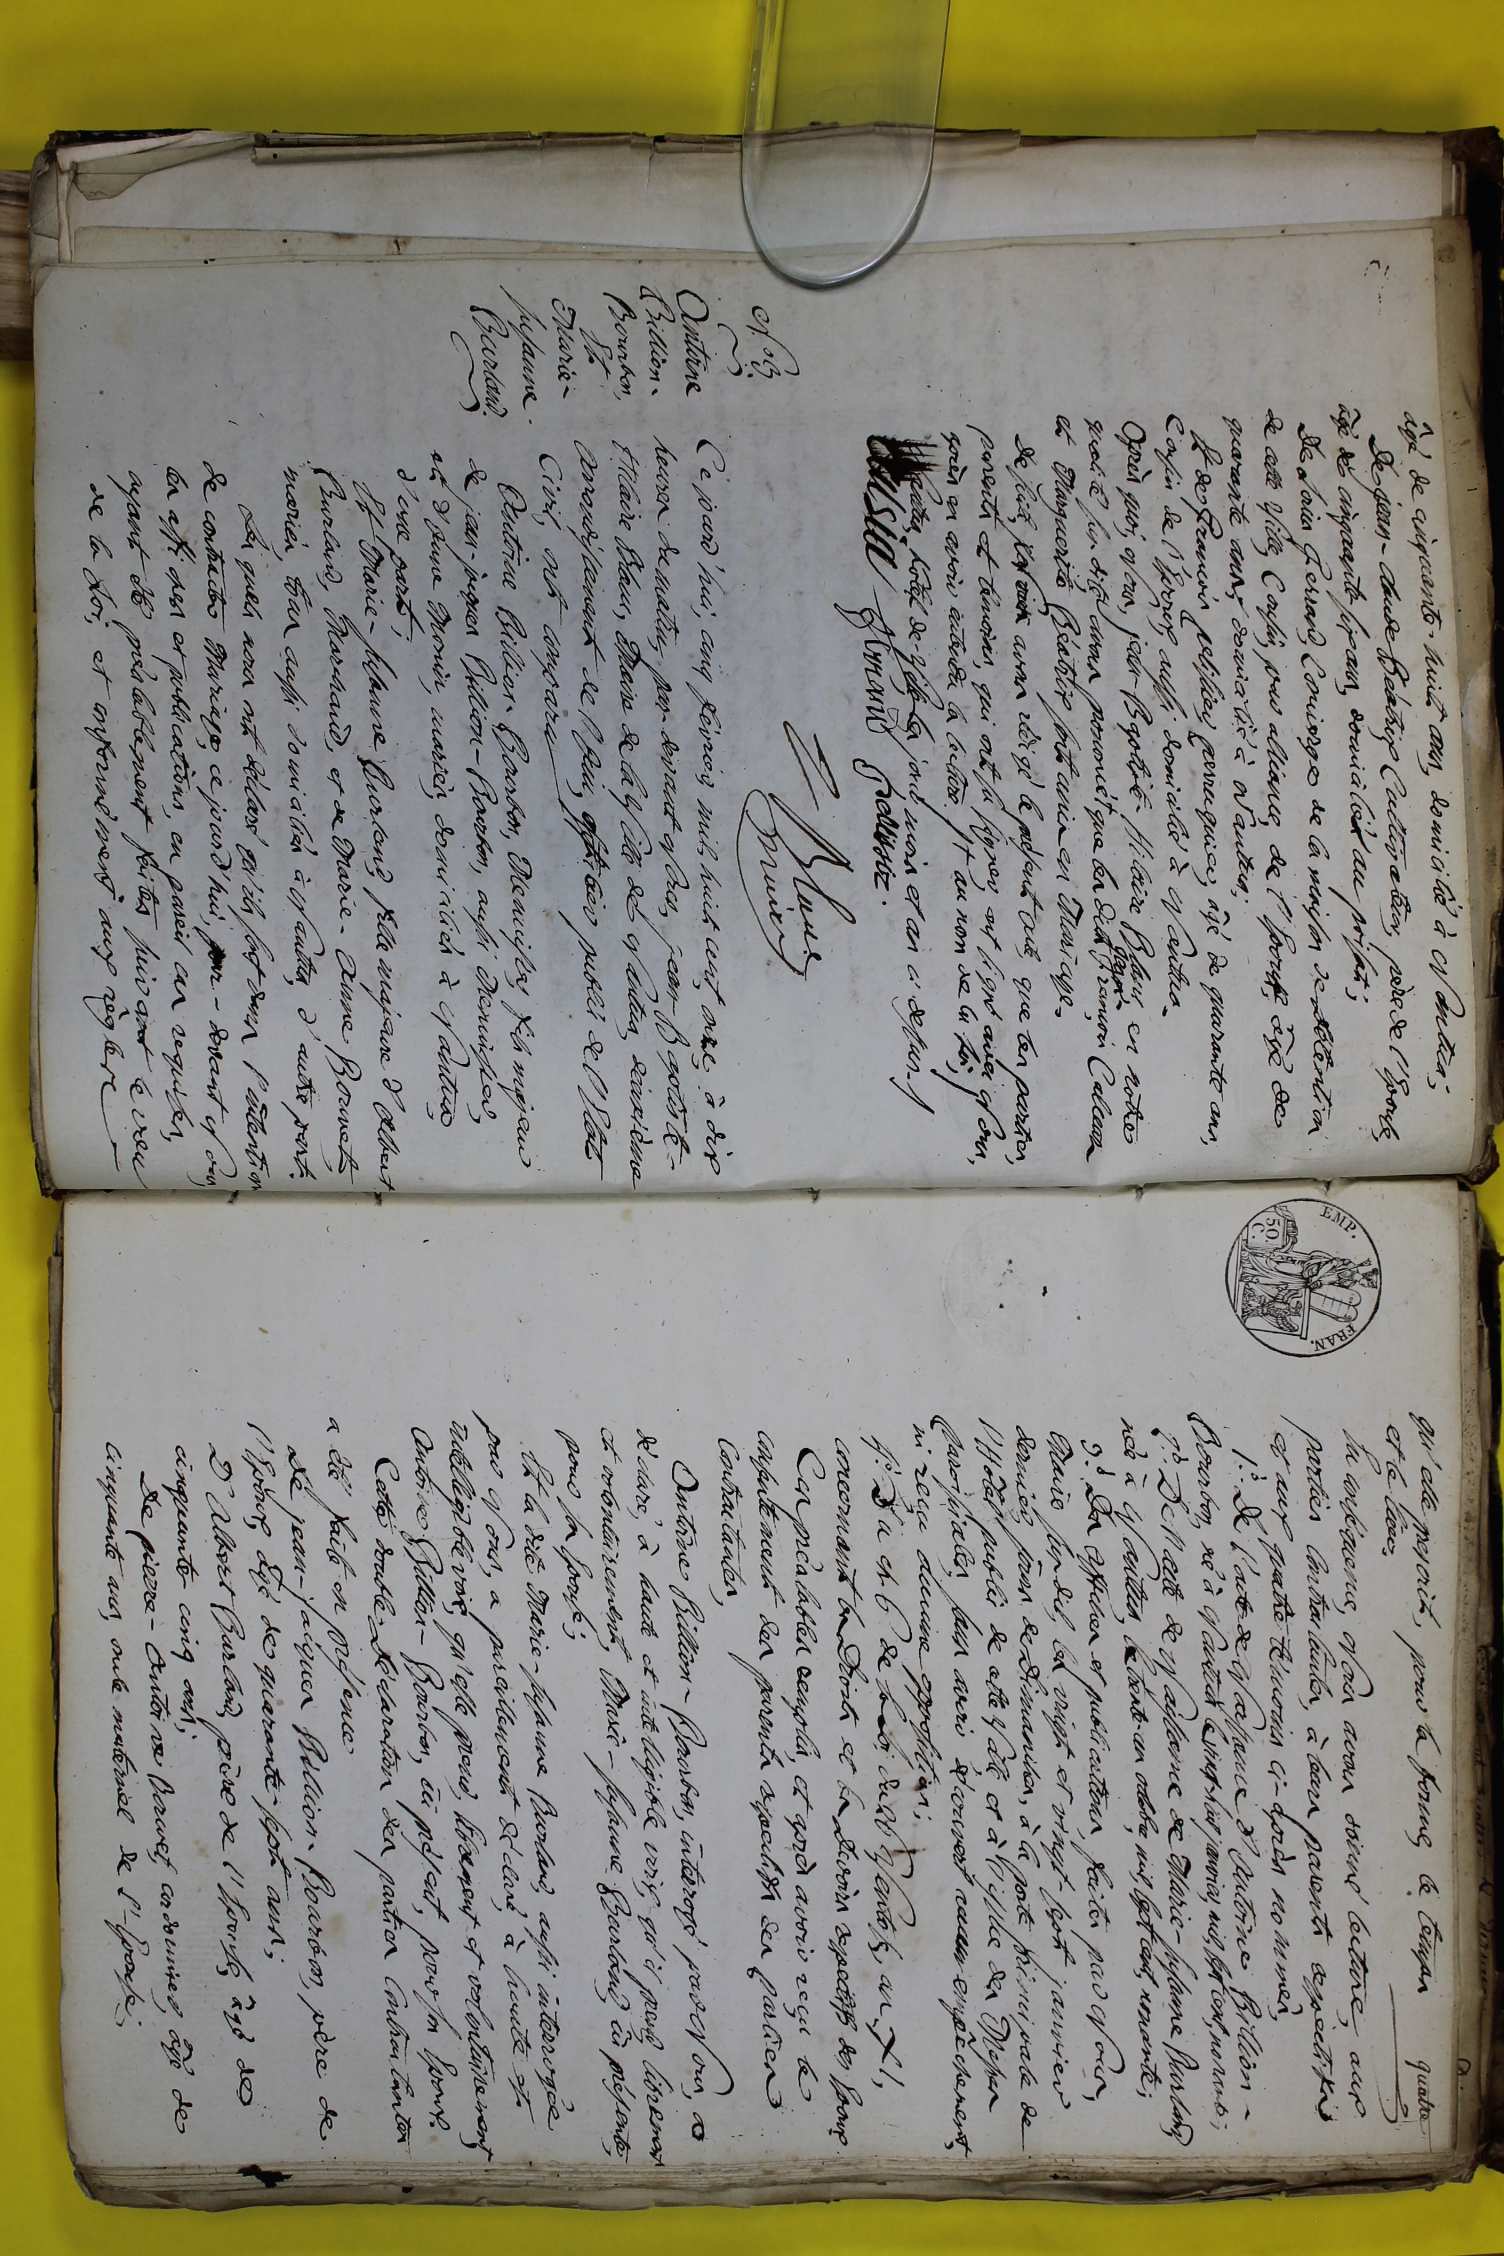 âgé de cinquante-huit ans, domicilié à Nantua;
De Jean-Claude Béatrix Cultivateur, père de l'Épouse,
âgé de cinquante six ans, domicilié au présent;
De Louis Gerrand Concierge de la maison de détention
de cette Ville, Cousin, par alliance, de l'Épouse, âgé de
quarante ans, domicilié à Nantua;
Et de François perruquier, âgé de quarante ans,
Cousin de l'Épouse, aussi domicilié à Nantua.
Après quoi, Nous, Jean-Baptiste-Hilaire en notre
qualité susdite, avons prononcé que les dits François
et Marguerite Béatrix sont unis en Mariage.
De suite, avons rédigé le présent acte, que les parties,
parents et témoins, qui ont su signer, ont signé avec Nous,
après en avoir entendu la lecture. Et au nom de la loi,
Nantua, hôtel-de-Ville les jour, mois et an ci dessus.
Maire
N.° 3.
Antoine
Billion-
Bourbon,
Et
Marie-
Susanne
Burland.
Ce jourd'hui, cinq février mil huit cent onze, à dix
heures du matin, par-devant Nous, Jean-Baptiste-
Hilaire Maire de la Ville de Nantua, deuxième
Arrondissement de l'Ain, officier public de l'État
Civil, ont comparu
Antoine Billion-Bourbon, Menuisier, fils majeur
de Jean-Jacques Billion-Bourbon, aussi Menuisier,
et d'Anne Monin, mariés, domiciliés à Nantua,
d'une part;
Et Marie-Susanne Burland, fille majeure d'Albert
Burland, Marchand, et de Marie-Anne Bonnet,
mariés, tous aussi domiciliés à Nantua, d'autre part.
Lesquels nous ont déclaré qu'ils sont dans l'intention
de contracter Mariage, ce jourd'hui, par-devant Nous,
les affiches et publications, en pareil cas requises,
ayant été préalablement faites suivant le vœu
de la Loi, et conformément aux règles
quatre
EMP. FRAN.
50 C.
qu'elle prescrit, pour la forme, le temps
et le lieu.
En conséquence, Nous avons donné lecture, aux
parties Contractantes, à leurs parents respectifs
et aux quatre témoins ci-après nommés,
1.° De l'acte de Naissance d'Antoine Billion-
Bourbon, né à Nantua le janvier, mil sept cent
2.° De l'acte de Naissance de Marie-Susanne Burland,
née à Nantua le octobre, mil sept cent nonante;
3.° Des affiches et publications faites par Nous,
Maire susdit, les vingt et vingt-sept janvier
dernier, jours de Dimanches, à la porte principale de
l'Hôtel public de cette Ville et à l'issue des Messes
Paroissiales, sans avoir découvert aucun empêchement,
ni reçu aucune opposition;
4.° Du ch. 6 de la Loi du Ventôse, an XI,
concernant les Droits et les Devoirs respectifs des Époux.
Ces préalables remplis, et après avoir reçu le
consentement des parents respectifs des parties
Contractantes,
Antoine Billion-Bourbon, interrogé par Nous, a
déclaré, à haute et intelligible voix, qu'il prend, librement
et volontairement, Marie-Susanne Burland, ici présente,
pour son Épouse;
Et la dite Marie-Susanne Burland, aussi interrogée
par Nous, a pareillement déclaré, à haute et
intelligible voix, qu'elle prend, librement et volontairement,
Antoine Billion-Bourbon, ici présent, pour son Époux.
Cette double déclaration des parties Contractantes
a été faite en présence
De Jean-Jacques Billion-Bourbon, père de
l'Époux, âgé de quarante-sept ans;
D'Albert Burland, père de l'Épouse, âgé de
cinquante cinq ans;
De Pierre-Antoine Bonnet, cordonnier, âgé de
cinquante ans, oncle maternel de l'Épouse;